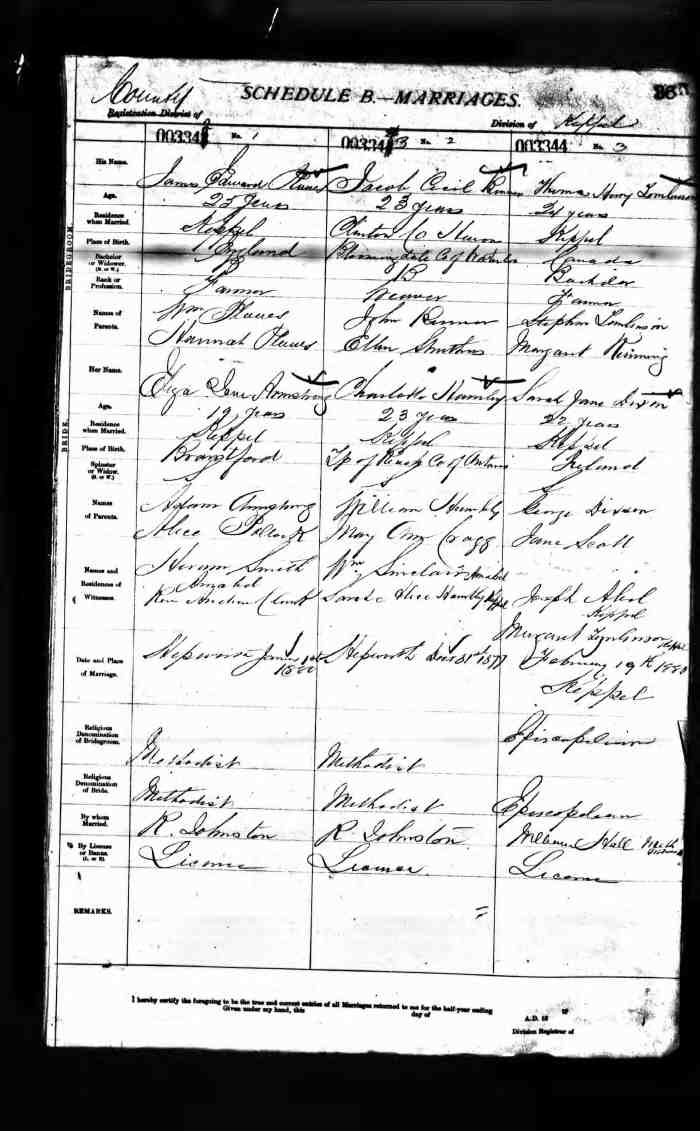 County
SCHEDULE B.—MARRIAGES.
Registration District of
Division of Keppel
No. 1
No. 2
003344 No. 3
BRIDEGROOM.
His Name.
James Edward
Jacob Cecil
Thomas Henry Tomlinson
Age.
23 years
23 years
24 years
Residence when Married.
Keppel
Clinton Co Huron
Keppel
Place of Birth.
England
Bloomingdale Co of Waterloo
Canada
Bachelor or Widower. (B. or W.)
B
B
Bachelor
Rank or Profession.
Farmer
Weaver
Farmer
Names of Parents.
Wm
John
Stephen Tomlinson
Hannah
Ellen
Margaret
BRIDE.
Her Name.
Eliza Jane Armstrong
Charlotte
Sarah Jane Dixon
Age.
19 years
23 years
22 years
Residence when Married.
Keppel
Keppel
Keppel
Place of Birth.
Brantford
Tp of Co of Ontario
Ireland
Spinster or Widow. (S. or W.)
S
S
S
Names of Parents.
Adam Armstrong
William
George Dixon
Alice Pollock
Mary Ann Cragg
Jane Scott
Names and Residences of Witnesses.
Hiram Smith
Wm Sinclair Amabel
Amabel
Joseph
Sarah Alice Keppel
Keppel
Margaret Tomlinson Keppel
Date and Place of Marriage.
Hepworth 1880
Hepworth Dec 31st 1879
February 19th 1880
Keppel
Religious Denomination of Bridegroom.
Methodist
Methodist
Episcopalian
Religious Denomination of Bride.
Methodist
Methodist
Episcopalian
By whom Married.
R. Johnston
R. Johnston
Hall
By License or Banns. (L. or B.)
License
License
License
REMARKS.
I hereby certify the foregoing to be the true and correct entries of all Marriages returned to me for the half-year ending
Given under my hand, this day of A.D. 18
Division Registrar of